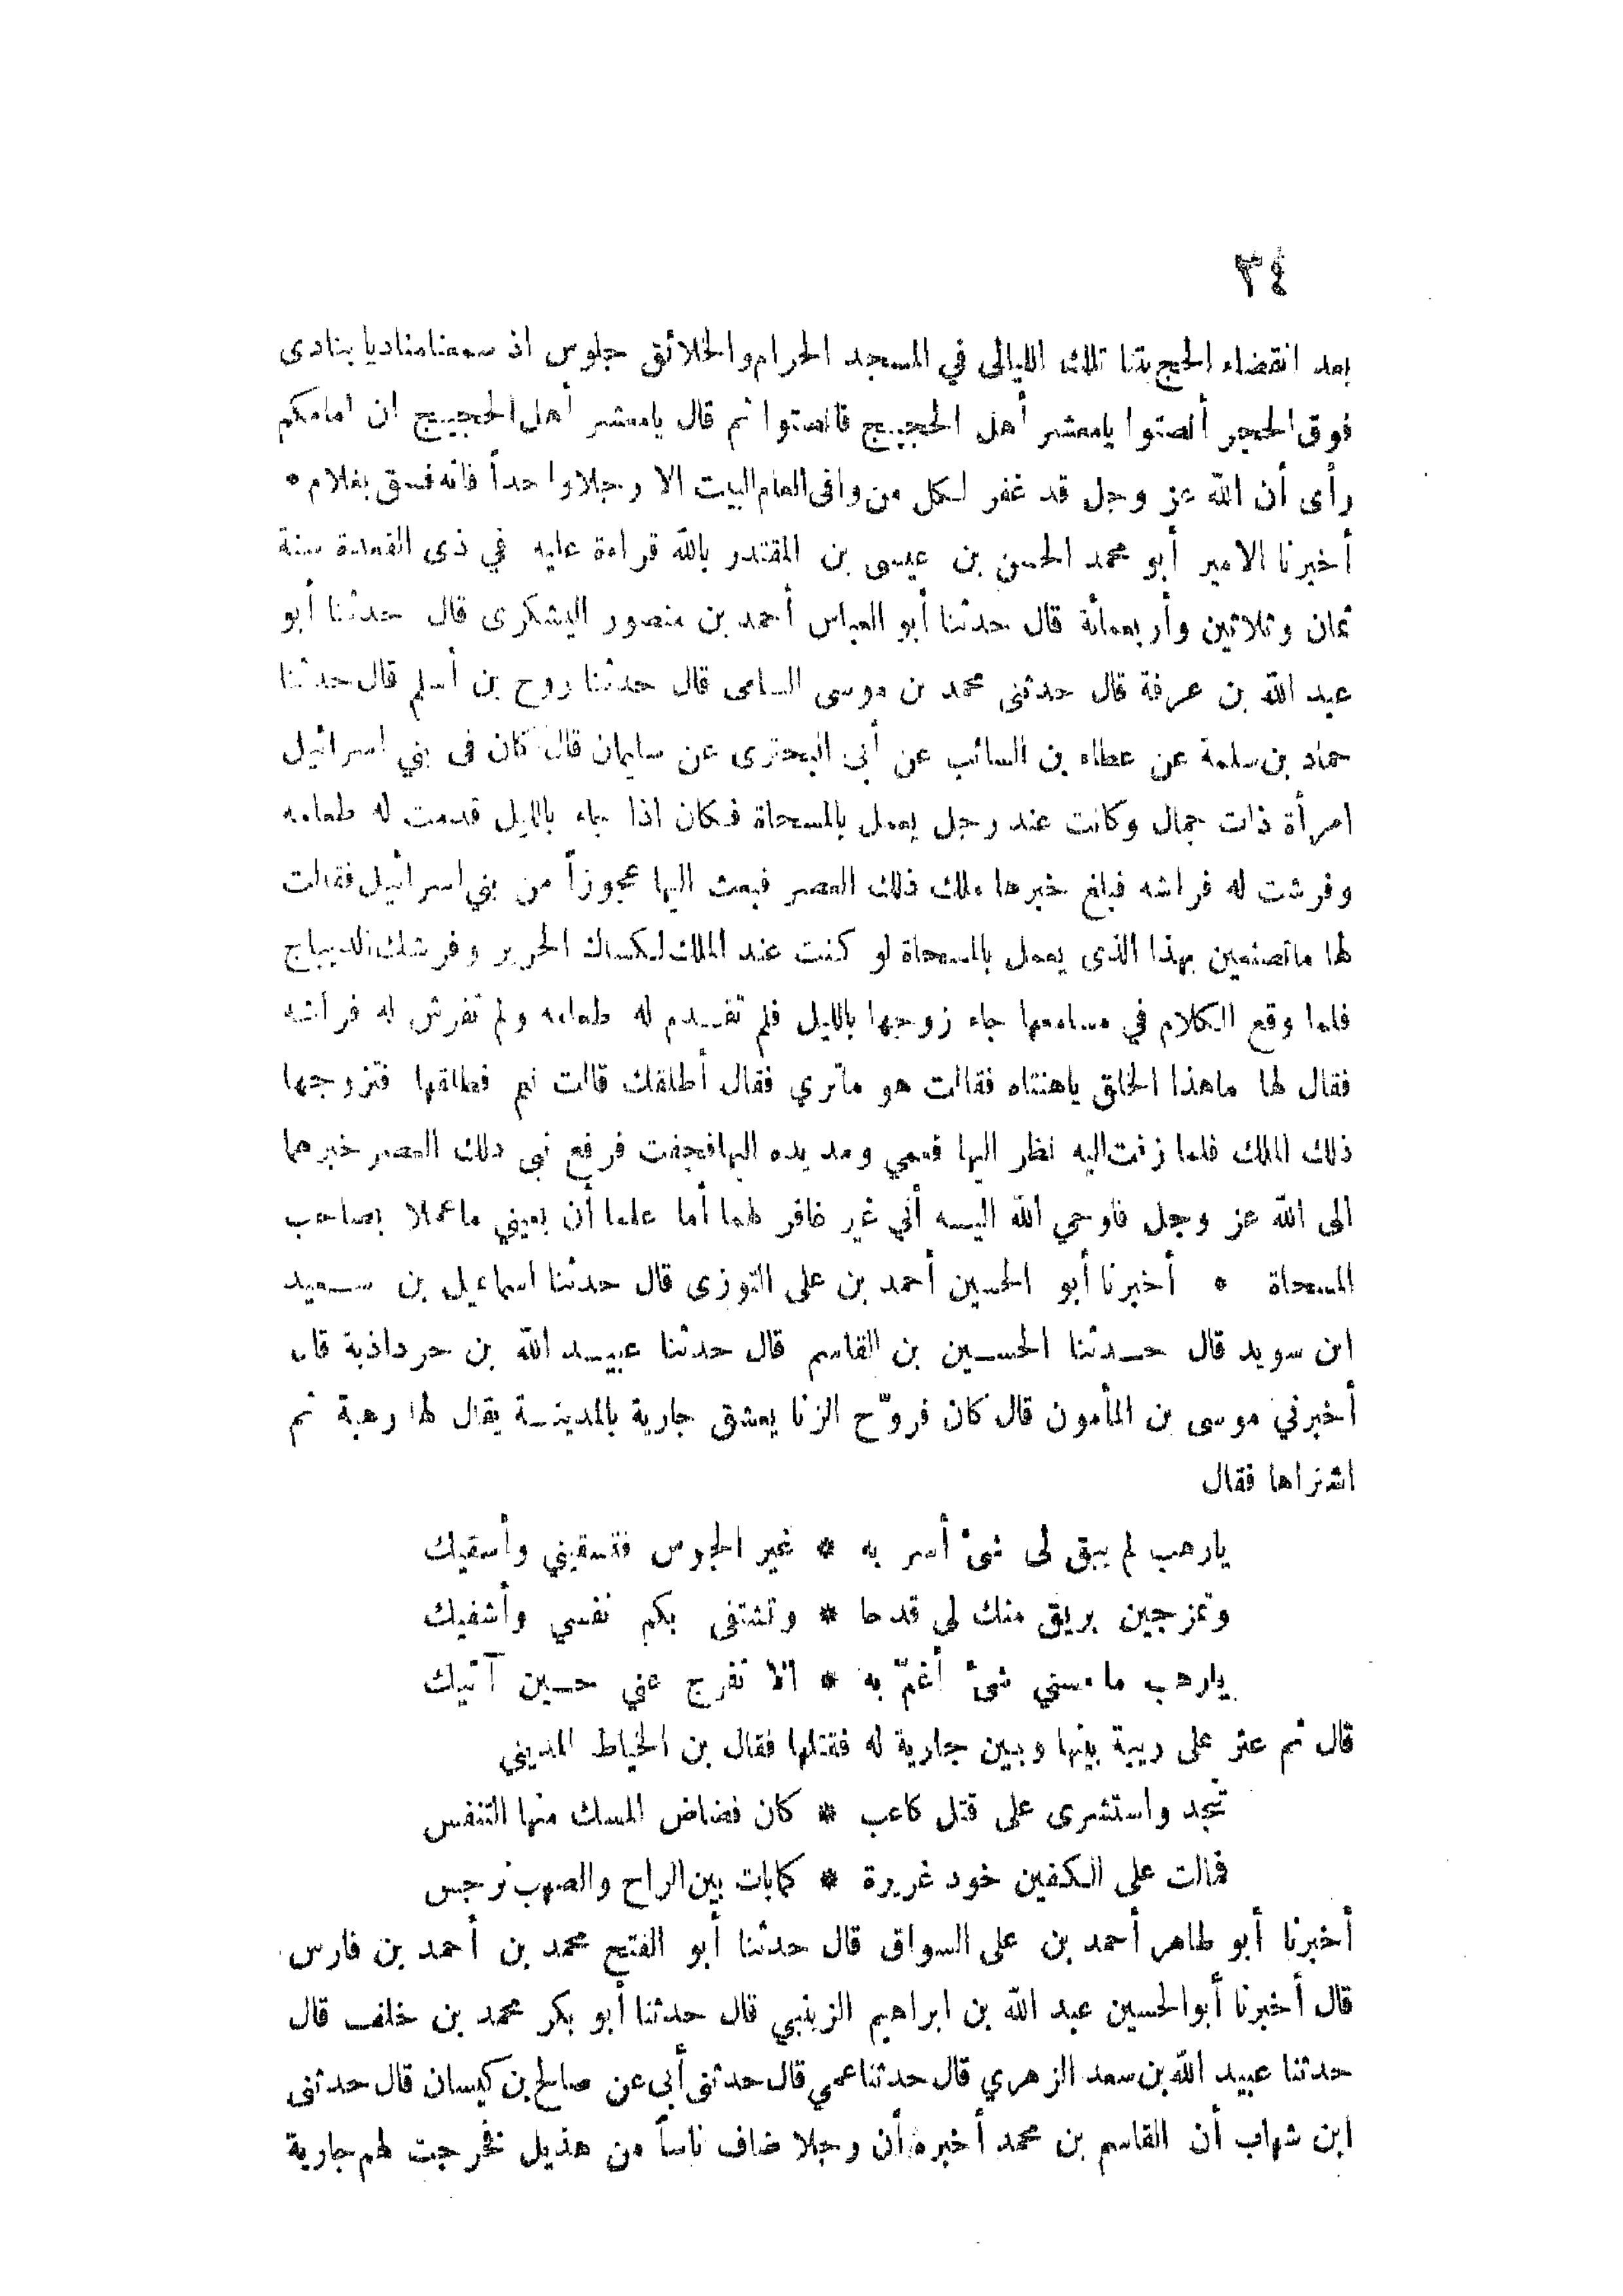 ٣٤
بعد انقضاء الحج بتنا تلك الليالى في المسجد الحرام والخلائق جلوس اذ سمعنا مناديا ينادى
فوق الحجر أنصتوا يامعشر أهل الحجيج فانصتوا ثم قال يامعشر أهل الحجيج ان امامكم
رأى أن الله عز وجل قد غفر لكل من وافى العام البيت الا رجلا واحداً فانه فسق بغلام •
أخبرنا الامير أبو محمد الحسن بن عيسى بن المقتدر بالله قراءة عليه في ذى القعدة سنة
ثمان وثلاثين وأربعمائة قال حدثنا أبو العباس أحمد بن منصور اليشكرى قال حدثنا أبو
عبد الله بن عرفة قال حدثنى محمد بن موسى السامى قال حدثنا روح بن أسلم قال حدثنا
حماد بن سلمة عن عطاء بن السائب عن أبى البحترى عن سليمان قال كان فى بني اسرائيل
امرأة ذات جمال وكانت عند رجل يعمل بالمسحاة فكان اذا جاء بالليل قدمت له طعامه
وفرشت له فراشه فبلغ خبرها ملك ذلك العصر فبعث اليها عجوزاً من بني اسرائيل فقالت
لها ماتصنعين بهذا الذى يعمل بالمسحاة لو كنت عند الملك لكساك الحرير وفرشك الديباج
فلما وقع الكلام في مسامعها جاء زوجها بالليل فلم تقدم له طعامه ولم تفرش له فراشه
فقال لها ماهذا الخلق ياهنتاه فقالت هو ماترى فقال أطلقك قالت نعم فطلقها فتزوجها
ذلك الملك فلما زفت اليه نظر اليها فعمي ومد يده اليها فجفت فرفع نبى ذلك العصر خبرهما
الى الله عز وجل فاوحي الله اليه أني غير غافر لهما أما علما أن بعيني ماعملا بصاحب
المسحاة • أخبرنا أبو الحسين أحمد بن على التوزى قال حدثنا اسماعيل بن سعيد
ابن سويد قال حدثنا الحسين بن القاسم قال حدثنا عبيد الله بن حرداذبة قال
أخبرني موسى بن المأمون قال كان فروّح الزنا يعشق جارية بالمدينة يقال لها رهبة ثم
اشتراها فقال
يارهب لم يبق لى شئ أسر به * غير الجلوس فتسقيني وأسقيك
وتمزجين بريق منك لى قدحا * وتشتفى بكم نفسي وأشفيك
يارهب مامسني شئ أغمّ به * الا تفرج عني حين آتيك
قال ثم عثر على ريبة بينها وبين جارية له فقتلها فقال بن الخياط المديني
تجد واستشرى على قتل كاعب * كان فضاض المسك منها التنفس
فمالت على الكفين خود غريرة * كمابات بين الراح والصهب نرجس
أخبرنا أبو طاهر أحمد بن على السواق قال حدثنا أبو الفتح محمد بن أحمد بن فارس
قال أخبرنا أبو الحسين عبد الله بن ابراهيم الزينبي قال حدثنا أبو بكر محمد بن خلف قال
حدثنا عبيد الله بن سعد الزهري قال حدثنا عمي قال حدثنى أبى عن صالح بن كيسان قال حدثنى
ابن شهاب أن القاسم بن محمد أخبره أن رجلا ضاف ناساً من هذيل فخرجت لهم جارية